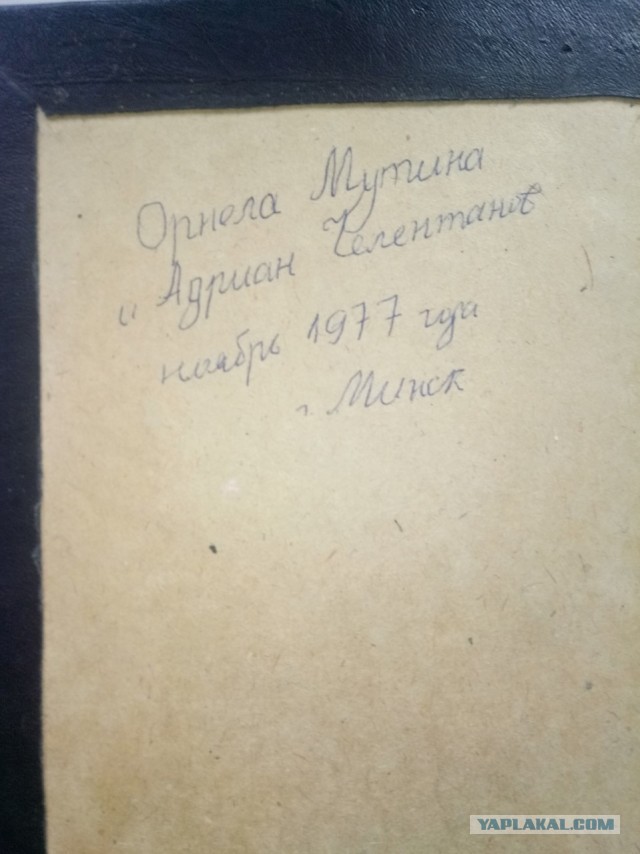 Орнела Мутина
и Адриан Челентанов
ноябрь 1977 года
г. Минск
YAPLAKAL.COM